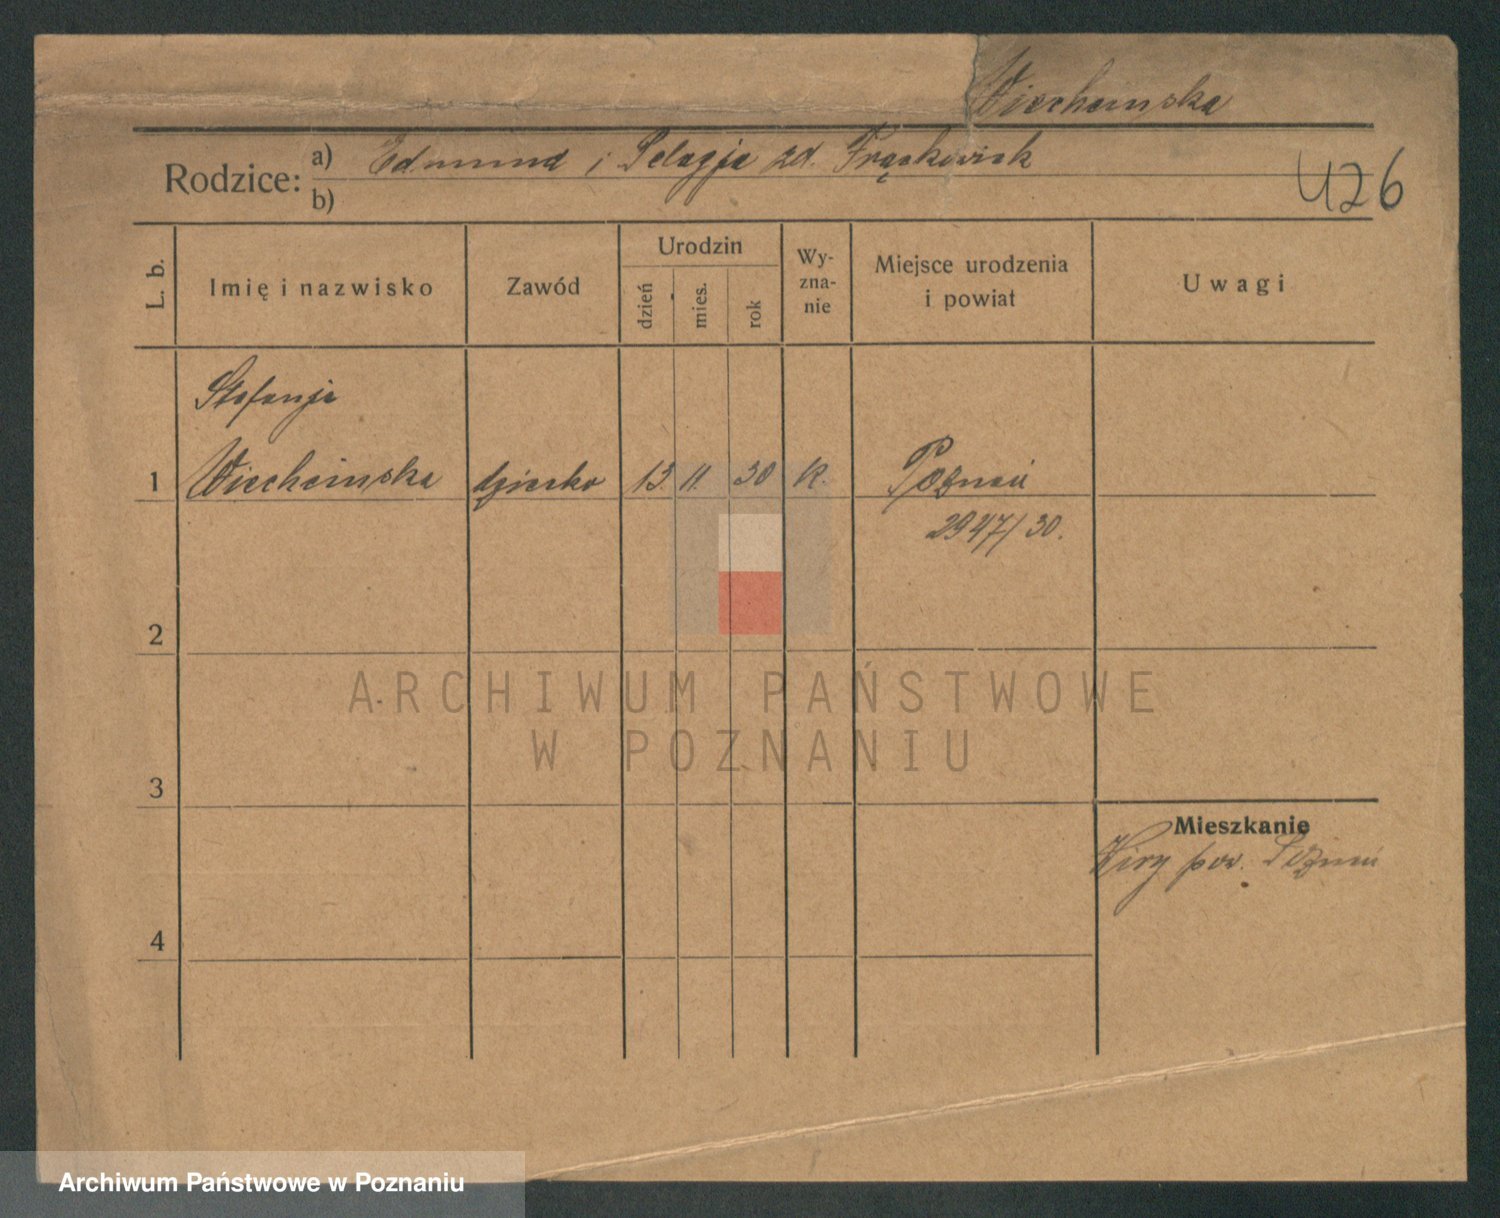 Wiecheinska
Rodzice:
a) Edmund i Pelagja zd. Frąckowiak
b)
426
L. b.
Imię i nazwisko
Zawód
Urodzin
dzień
mies.
rok
Wy-
zna-
nie
Miejsce urodzenia
i powiat
Uwagi
Stefanja
1 Wiecheinska dziecko 13 11. 30 k. Poznań
2947/30.
2
3
4
Mieszkanie
Wiry pow. Poznań
ARCHIWUM PAŃSTWOWE
W POZNANIU
Archiwum Państwowe w Poznaniu